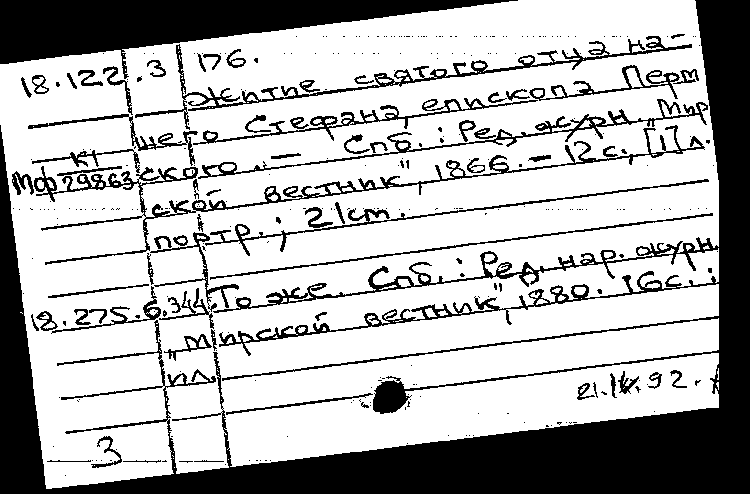 18.122.3 176.
Житие святого отца на-
шего Стефана, епископа Перм
К1
Мф 29863 ского. — Спб. : Ред. журн. „Мир
ской вестник", 1866. – 12 с., [1] л.
портр. ; 21 cm.
18.275.6.344. То же. Спб. : Ред. нар. журн.
„Мирской вестник", 1880. 16 с. :
ил.
21.IV.92.
3